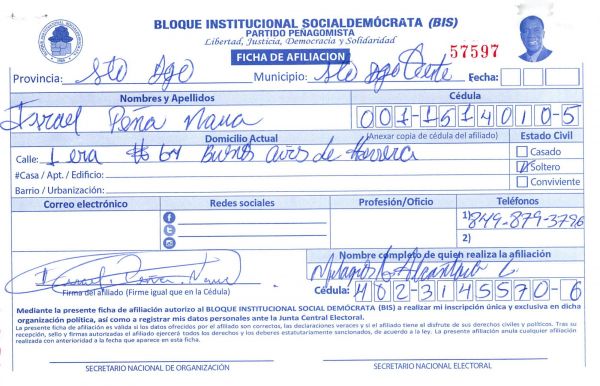 BLOQUE INSTITUCIONAL SOCIALDEMÓCRATA (BIS)
PARTIDO PEÑAGOMISTA
Libertad, Justicia, Democracia y Solidaridad
FICHA DE AFILIACION
57597
Provincia: Sto Dgo Municipio: Sto Dgo Oeste Fecha:
Nombres y Apellidos Cédula
Israel Peña Nava 001-1514010-5
Domicilio Actual (Anexar copia de cédula del afiliado) Estado Civil
Calle: 1 era # 64 Buenos aires de Herrera Casado
#Casa / Apt. / Edificio: Soltero
Barrio / Urbanización: Conviviente
Correo electrónico Redes sociales Profesión/Oficio Teléfonos
1) 849-879-3796
2)
Nombre completo de quien realiza la afiliación
Milagros
Israel Peña Nava
Firma del afiliado (Firme igual que en la Cédula) Cédula: 402-3145570-6
Mediante la presente ficha de afiliación autorizo al BLOQUE INSTITUCIONAL SOCIAL DEMÓCRATA (BIS) a realizar mi inscripción única y exclusiva en dicha
organización política, así como a registrar mis datos personales ante la Junta Central Electoral.
La presente ficha de afiliación es válida si los datos ofrecidos por el afiliado son correctos, las declaraciones veraces y si el afiliado tiene el disfrute de sus derechos civiles y políticos. Tras su
recepción, sello y firmas autorizadas el afiliado ejercerá todos los derechos y los deberes estatutariamente sancionados, de acuerdo a la ley. La presente afiliación anula cualquier afiliación
realizada con anterioridad a la fecha que aparece en esta ficha.
SECRETARIO NACIONAL DE ORGANIZACIÓN SECRETARIO NACIONAL ELECTORAL